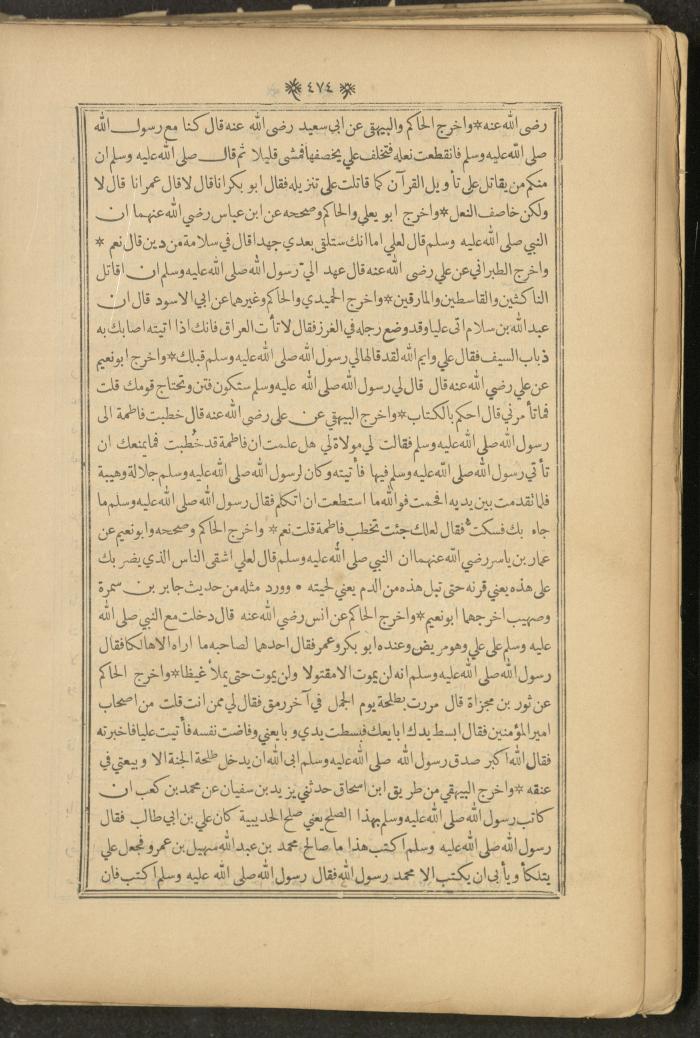 ٤٧٤
رضي الله عنه*واخرج الحاكم والبيهقي عن ابي سعيد رضي الله عنه قال كنا مع رسول الله
صلى الله عليه وسلم فانقطعت نعله فتخلف علي يخصفها فمشى قليلا ثم قال صلى الله عليه وسلم ان
منكم من يقاتل على تأويل القرآن كما قاتلت على تنزيله فقال ابو بكر انا قال لا قال عمر انا قال لا
ولكن خاصف النعل*واخرج ابو يعلى والحاكم وصححه عن ابن عباس رضي الله عنهما ان
النبي صلى الله عليه وسلم قال لعلي اما انك ستلقى بعدي جهدا قال في سلامة من دين قال نعم *
واخرج الطبراني عن علي رضي الله عنه قال عهد اليّ رسول الله صلى الله عليه وسلم ان اقاتل
الناكثين والقاسطين والمارقين*واخرج الحميدي والحاكم وغيرهما عن ابي الاسود قال ان
عبد الله بن سلام اتى عليا وقد وضع رجله في الغرز فقال لا تأت العراق فانك اذا اتيته اصابك به
ذباب السيف فقال علي وايم الله لقد قالها لي رسول الله صلى الله عليه وسلم قبلك*واخرج ابو نعيم
عن علي رضي الله عنه قال قال لي رسول الله صلى الله عليه وسلم ستكون فتن وتحتاج قومك قلت
فما تأمرني قال احكم بالكتاب*واخرج البيهقي عن علي رضي الله عنه قال خطبت فاطمة الى
رسول الله صلى الله عليه وسلم فقالت لي مولاة لي هل علمت ان فاطمة قد خُطبت فما يمنعك ان
تأتي رسول الله صلى الله عليه وسلم فيها فأتيته وكان لرسول الله صلى الله عليه وسلم جلالة وهيبة
فلما تقدمت بين يديه افحمت فوالله ما استطعت ان اتكلم فقال رسول الله صلى الله عليه وسلم ما
جاء بك فسكت فقال لعلك جئت تخطب فاطمة قلت نعم* واخرج الحاكم وصححه وابو نعيم عن
عمار بن ياسر رضي الله عنهما ان النبي صلى الله عليه وسلم قال لعلي اشقى الناس الذي يضربك
على هذه يعني قرنه حتى تبل هذه من الدم يعني لحيته • وورد مثله من حديث جابر بن سمرة
وصهيب اخرجهما ابو نعيم*واخرج الحاكم عن انس رضي الله عنه قال دخلت مع النبي صلى الله
عليه وسلم على علي وهو مريض وعنده ابو بكر وعمر فقال احدهما لصاحبه ما اراه الا هالكا فقال
رسول الله صلى الله عليه وسلم انه لن يموت الا مقتولا ولن يموت حتى يملأ غيظا*واخرج الحاكم
عن ثور بن مجزاة قال مررت بطلحة يوم الجمل في آخر رمق فقال لي ممن انت قلت من اصحاب
امير المؤمنين فقال ابسط يدك ابايعك فبسطت يدي وبايعني وفاضت نفسه فأتيت عليا فاخبرته
فقال الله اكبر صدق رسول الله صلى الله عليه وسلم ابى الله ان يدخل طلحة الجنة الا وبيعتي في
عنقه *واخرج البيهقي من طريق ابن اسحاق حدثني يزيد بن سفيان عن محمد بن كعب ان
كاتب رسول الله صلى الله عليه وسلم بهذا الصلح يعني صلح الحديبية كان علي بن ابي طالب فقال
رسول الله صلى الله عليه وسلم اكتب هذا ما صالح محمد بن عبد الله سهيل بن عمرو فجعل علي
يتلكأ ويأبى ان يكتب الا محمد رسول الله فقال رسول الله صلى الله عليه وسلم اكتب فان